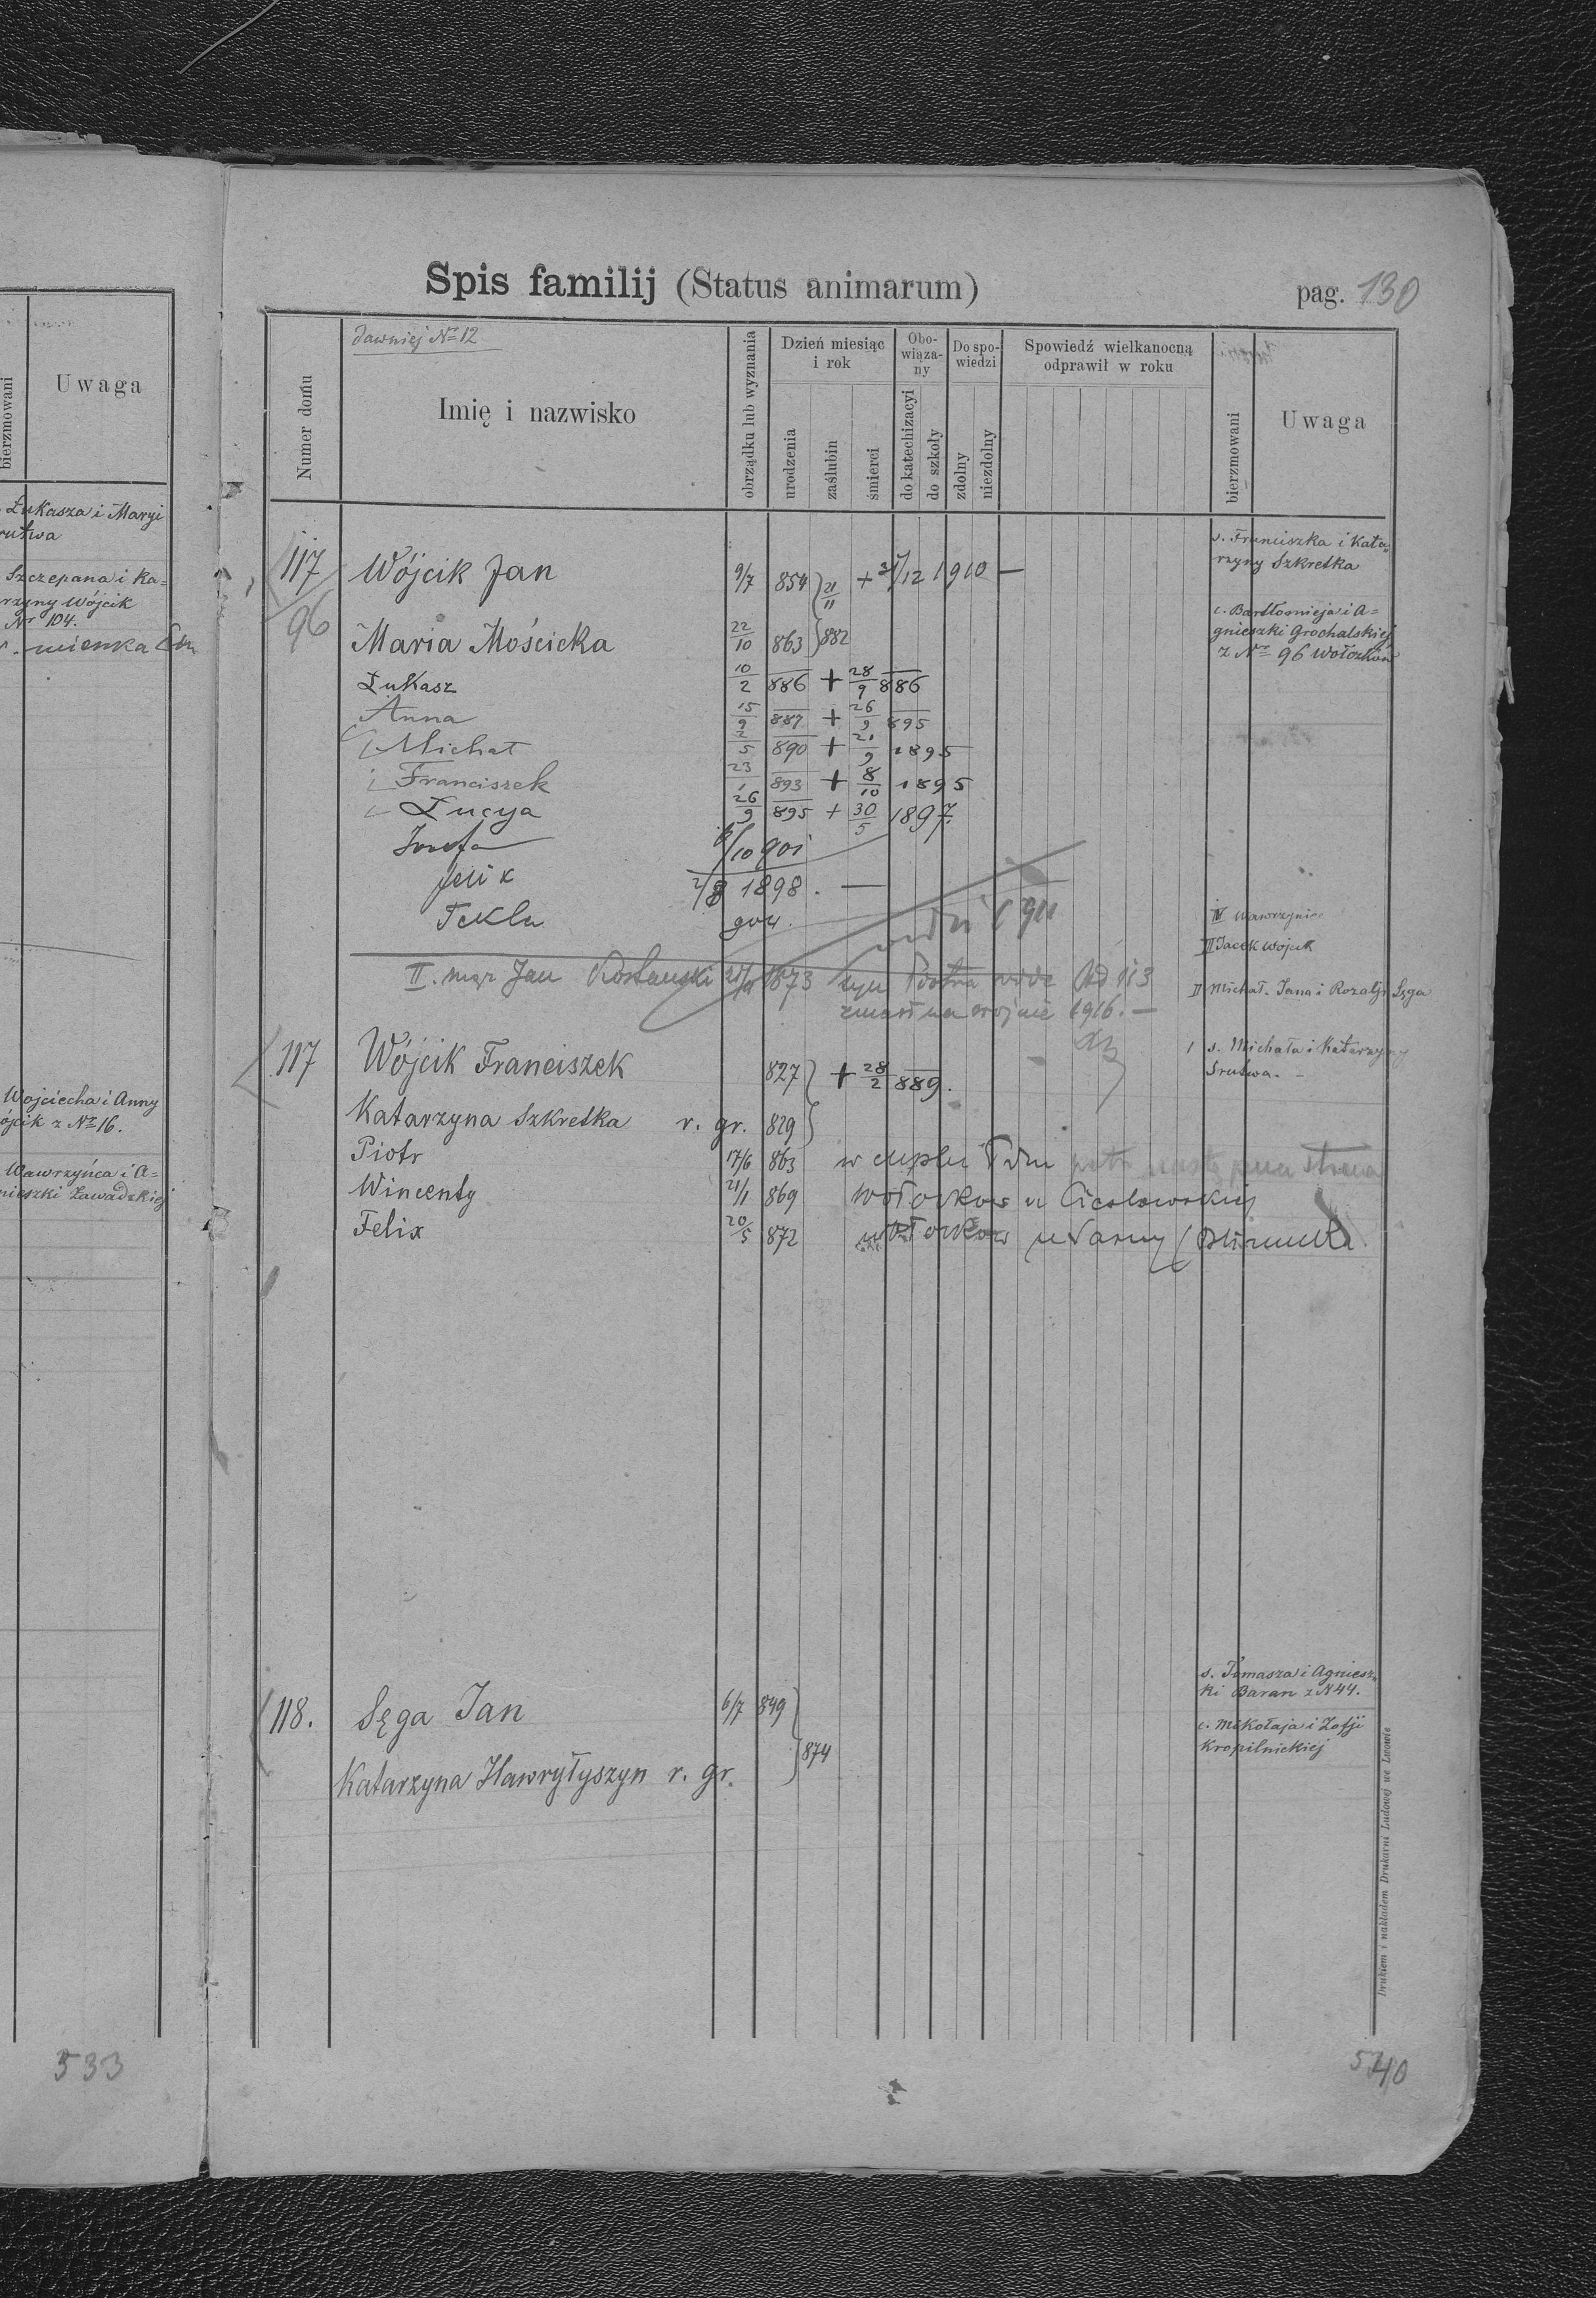 Łukasza i Maryi
Szczepana i Ka=
rzyny Wójcik
Nr 104.
Wojciecha i Anny
ójcik z Nr 16.
Wawrzyńca i A=
nieszki Zawadzkiej
bierzmowani
Uwaga
533
Spis familij (Status animarum)
pag. 130
dawniej Nr 12
Numer domu
Imię i nazwisko
obrządku lub wyznania
Dzień miesiąc i rok
urodzenia
zaślubin
śmierci
Obo-wiąza-ny
do katechizacyi
do szkoły
Do spo-wiedzi
zdolny
niezdolny
Spowiedź wielkanocną odprawił w roku
bierzmowani
Uwaga
s. Franciszka i Kata=
rzyny Szkretka
117 Wójcik Jan 9/7 854 21/11 + /12 1910 —
96
c. Bartłomieja i A=
gnieszki Grochalskiej
z Nr 96 Wołczków
Maria Mościcka 22/10 863 882
Łukasz 10/2 886 + 28/9 886
Anna 15/9 887 + 26/9 895
Michał 2/5 890 + 21/9 1895
Franciszek 23/1 893 + 8/10 1895
Łucya 26/9 895 + 30/5 1897.
Józefa /10 901
Felix 2/8 1898. —
Tekla 904.
IV Wawrzyniec
II Jacek Wójcik
II. mąż Jan 1873 syn
zmarł na wojnie 1916. —
II Michał. Jana i Rozalji Sęga
117 Wójcik Franciszek 827 + 28/2 889.
1 s. Michała i Katarzyny
Srutwa. -
Katarzyna Szkretka r. gr. 829
Piotr 17/6 863 w strona
Wincenty 21/1 869 Wołczków u
Felix 20/5 872 Wołczków
s. Tomasza i Agniesz=
ki Baran z N 44.
118. Sęga Jan 6/7 849
874
c. Mikołaja i Zofji
Kropilnickiej
Katarzyna Hawryłyszyn r. gr.
Drukiem i nakładem Drukarni Ludowej we Lwowie
540